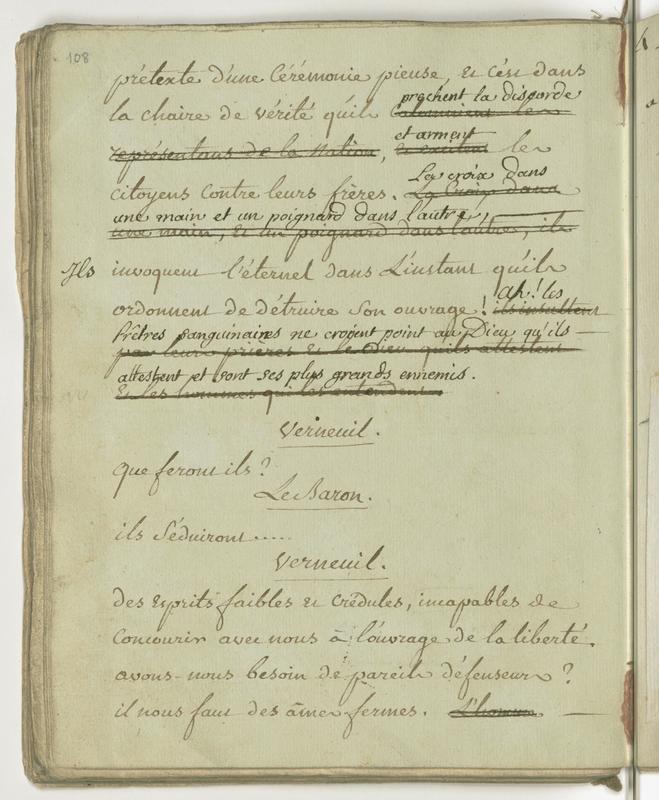 108
prétexte d'une Cérémonie pieuse, et c'est dans
prechent la discorde
la chaire de vérité qu'ils Calomnient les
et arment
représentans de la Nation, et excitent les
La croix dans
citoyens contre leurs frères. La Croix dans
une main et un poignard dans l'autre,
une main, et un poignard dans l'autre, ils
Ils invoquent l'éternel dans l'instant qu'ils
Ah! les
ordonnent de détruire son ouvrage! ils insultent
Prêtres sanguinaires ne croyent point au Dieu qu'ils
par leurs prieres et le Dieu qu'ils attestent
attestent et sont ses plus grands ennemis.
et les hommes qui les entendent
Verneuil.
que feront ils?
Le Baron.
ils Séduiront.....
Verneuil.
des esprits faibles et crédules, incapables de
concourir avec nous à l'ouvrage de la liberté.
avons-nous besoin de pareils défenseurs?
il nous faut des âmes fermes. L'homme